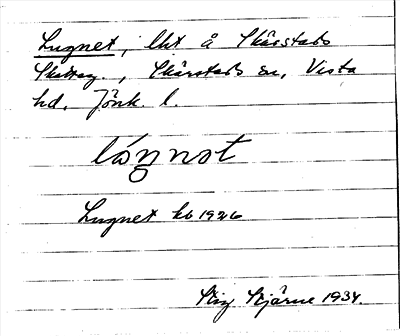 Lugnet, lht å Skärstads
Skatteg., Skärstads sn, Vista
hd, Jönk. l.
lóŋnət
Lugnet kb 1926
Stig Stjärne 1934.